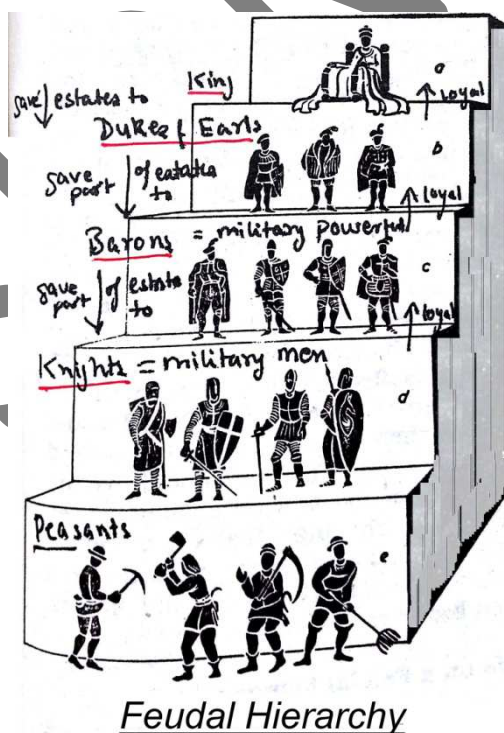 a
King
gave estates to
Loyal
Dukes & Earls
b
gave part of estates to
Loyal
Barons = military powerful
c
gave part of estate to
Loyal
Knights = military men
d
Peasants
e
Feudal Hierarchy